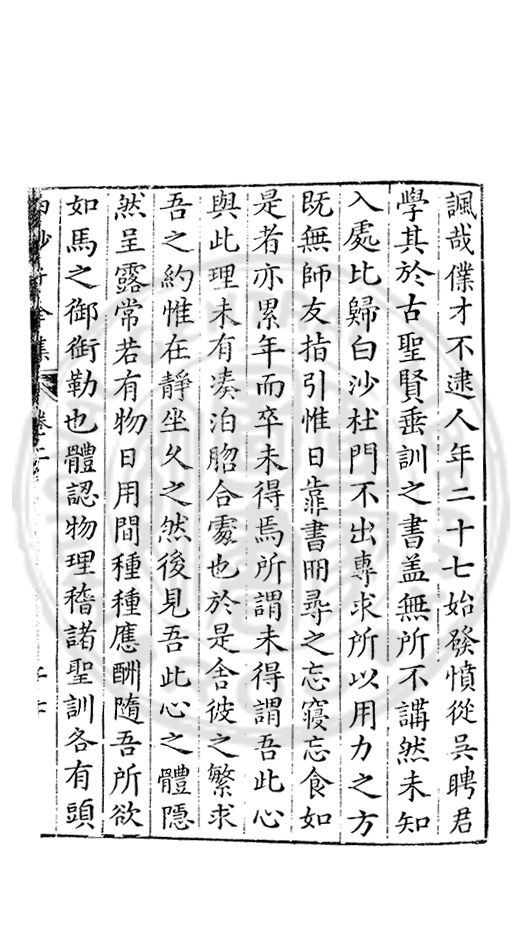 諷哉僕才不逮人年二十七始發憤從吳聘君
學其於古聖賢垂訓之書盖無所不講然未知
入處比歸白沙杜門不出專求所以用力之方
既無師友指引惟日靠書冊尋之忘寢忘食如
是者亦累年而卒未得焉所謂未得謂吾此心
與此理未有湊泊脗合處也於是舍彼之繁求
吾之約惟在靜坐久之然後見吾此心之體隱
然呈露常若有物日用間種種應酬隨吾所欲
如馬之御銜勒也體認物理稽諸聖訓各有頭